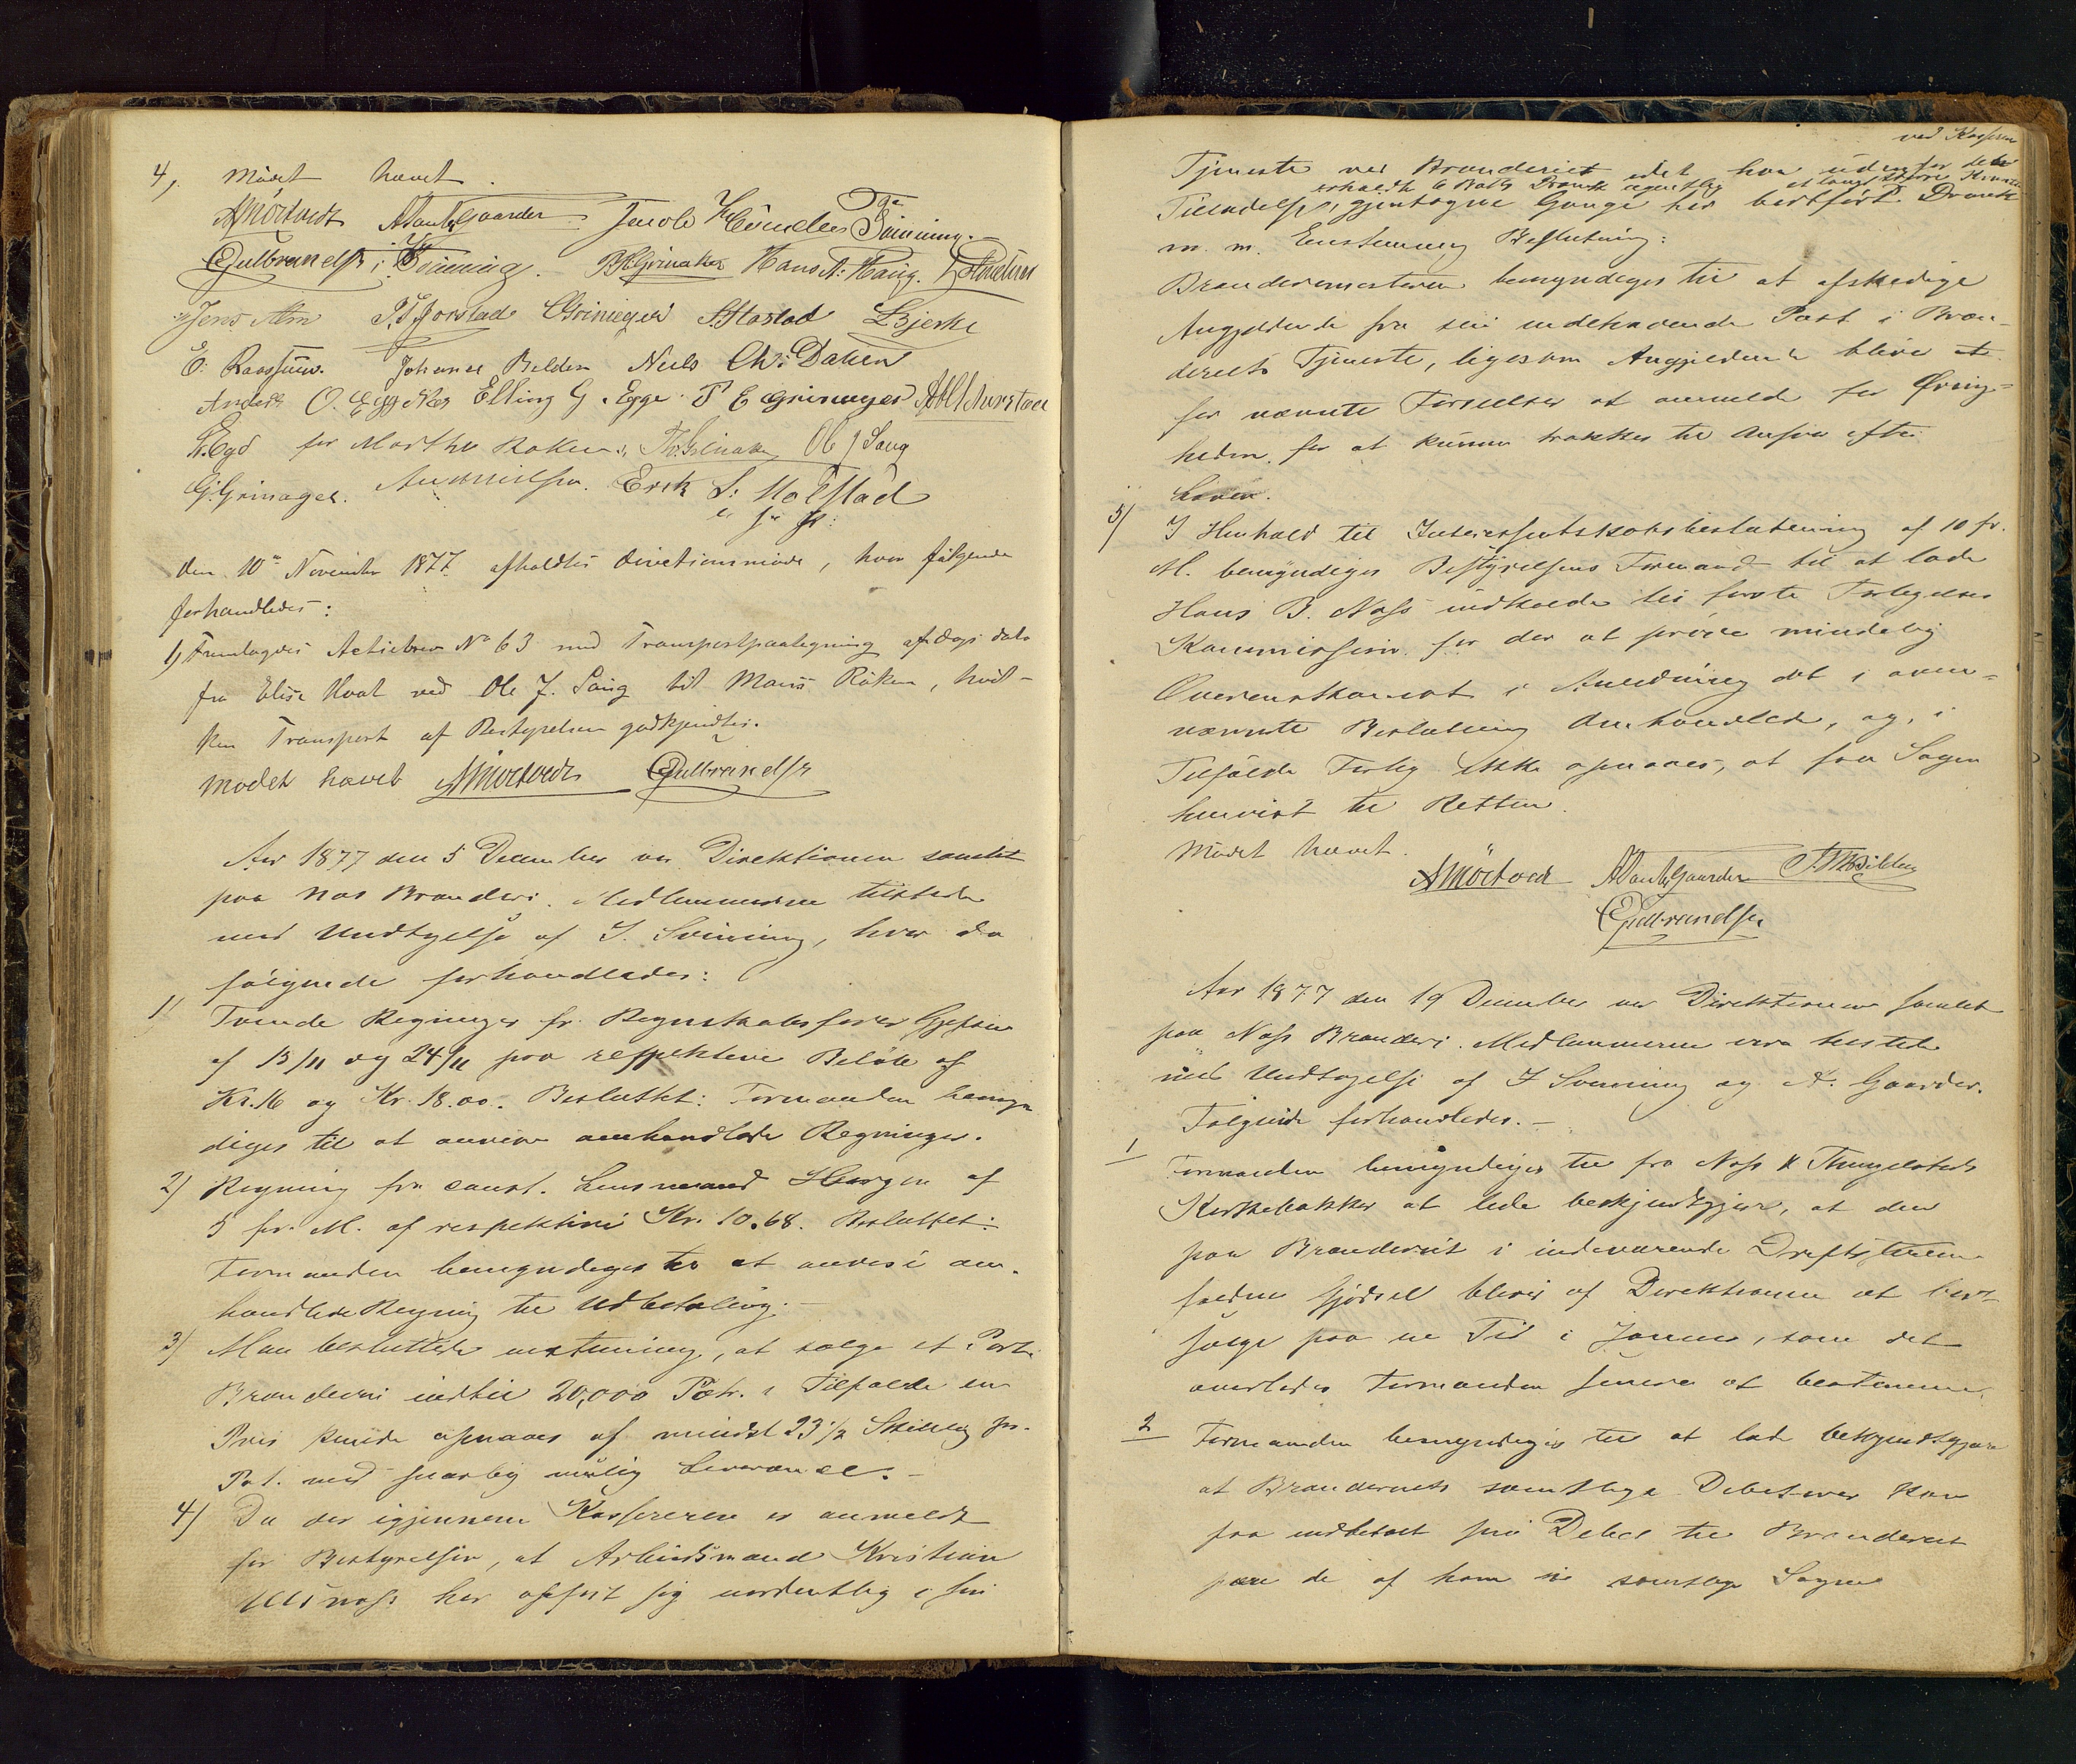 4, Mödet hævet.
AMörtvedt Jacob Svinning.
Gulbrandsen i Hans A: Haug.
Jens Alm P. T. Jorstad S. Stastad LBjerke
Johannes Nils Chr: Dahlen
Anders O. Egge Elling G. Egge P E Grinager
for Marthe Ole J Saug
G. Grinager. Erik S: Molstad
e. f.
den 10de November 1877 afholdtes Directionsmöde, hvor fölgende
forhandledes:
1) Fremlagdes Actiebrev No 63 med Transportpaategning af Dags dato
fra Elise Hval ved Ole J. Saug til Maus Röken, hvil-
ken Transport af Bestyrelsen godkjendtes.
Mödet hævet AMörtvedt Gulbrandsen
Aar 1877 den 5 December var Direktionen samlet
paa Næs Brænderi. Medlemmerne tilstede
med Undtagelse af J. Svinning, hvor da
fölgende forhandledes:
1) Tvende Regninger fr. Regnskabsförer Gjefsen
af 13/11 og 24/11 paa respektive Belöb af
Kr. 16 og Kr. 18.00. Besluttet: Formanden bemyn
diges til at anvise omhandlede Regninger.
2) Regning fra const. Lensmand af
5 fr. M. af respektive Kr. 10.68. Besluttet:
Formanden bemyndiges til at anvise om-
handlede Regning til Udbetaling.-
3) Man besluttede enstemmig, at sælge et Parti
Brændevin indtil 20,000 Potr. i Tilfælde en
Pris kunde opnaaes af mindst 23 1/2 Skilling pr.
Pot. med snarlig mulig Leverance.-
4) Da der igjennem Kassereren er anmeldt
for Bestyrelsen, at Arbeidsmand Kristian
har opfört sig uordentlig i sin
ved Kasseren
Tjeneste ved Brænderiet idet han udenfor den
erholdt 6 Potter Drank egentlig et langt större Kvantum
Tilladelse, gjentagne Gange har bortfört Drank
m. m. Enstemmig Beslutning:
Brænderimesteren bemyndiges til at afskedige
Angjeldende fra sin indehavende Post i Bræn-
deriets Tjeneste, ligesom Angjeldende bliver at
for nævnte Forseelser at anmelde for Övrig-
heden for at kunne trækkes til Ansvar efter
Loven.
5) I Henhold til Interessentskabsbeslutning af 10 f.
M. bemyndiges Bestyrelsens Formand til at lade
Hans B. Næss indkalde til förste Forligelses
Kommission for der at pröve mindelig
Overenskomst i Anledning det i oven-
nævnte Beslutning Omhandlede, og, i
Tilfælde Forlig ikke opnaaes, at faa Sagen
henvist til Retten.
Mödet hævet.
AMörtvedt
Gulbrandsen
Aar 1877 den 19 December var Direktionen samlet
paa Næss Brænderi. Medlemmerne vare tilstede
med Undtagelse af J Svinning og A. Gaarder.
Fölgende forhandledes.-
1 Formanden bemyndiges til fra Næss & Thingelstads
Kirkebakker at lade bekjendtgjöre, at den
paa Brænderiet i indeværende Driftstermin
faldne Gjödsel bliver af Direktionen at bort
sælge paa en Tid i Januar, som det
overlades Formanden senere at bestemme.
2 Formanden bemyndiges til at lade bekjendtgjöre
at Brænderiets samtlige Debitorer kan
faa indbetalt sin Debet til Brænderiet
de af ham samtlige